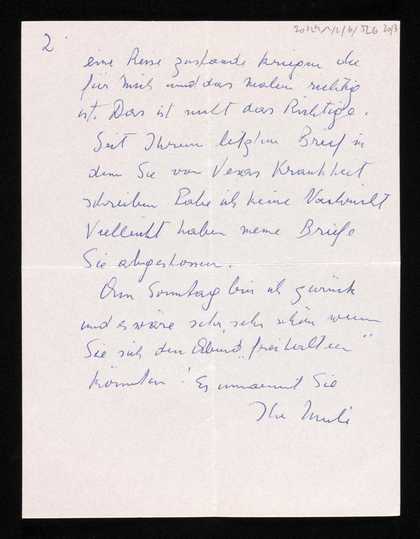 2
eine Reise zustande kriegen die
für mich und das Malen richtig
ist. Das ist nicht das Richtige.
Seit Ihrem letzten Brief in
dem Sie von Veras Krankheit
schreiben habe ich keine Nachricht
Vielleicht haben meine Briefe
Sie abgestossen.
Am Sonntag bin ich zurück
und es wäre sehr, sehr schön wenn
Sie sich den Abend "freihalten"
könnten! Es umarmt Sie
Ihr